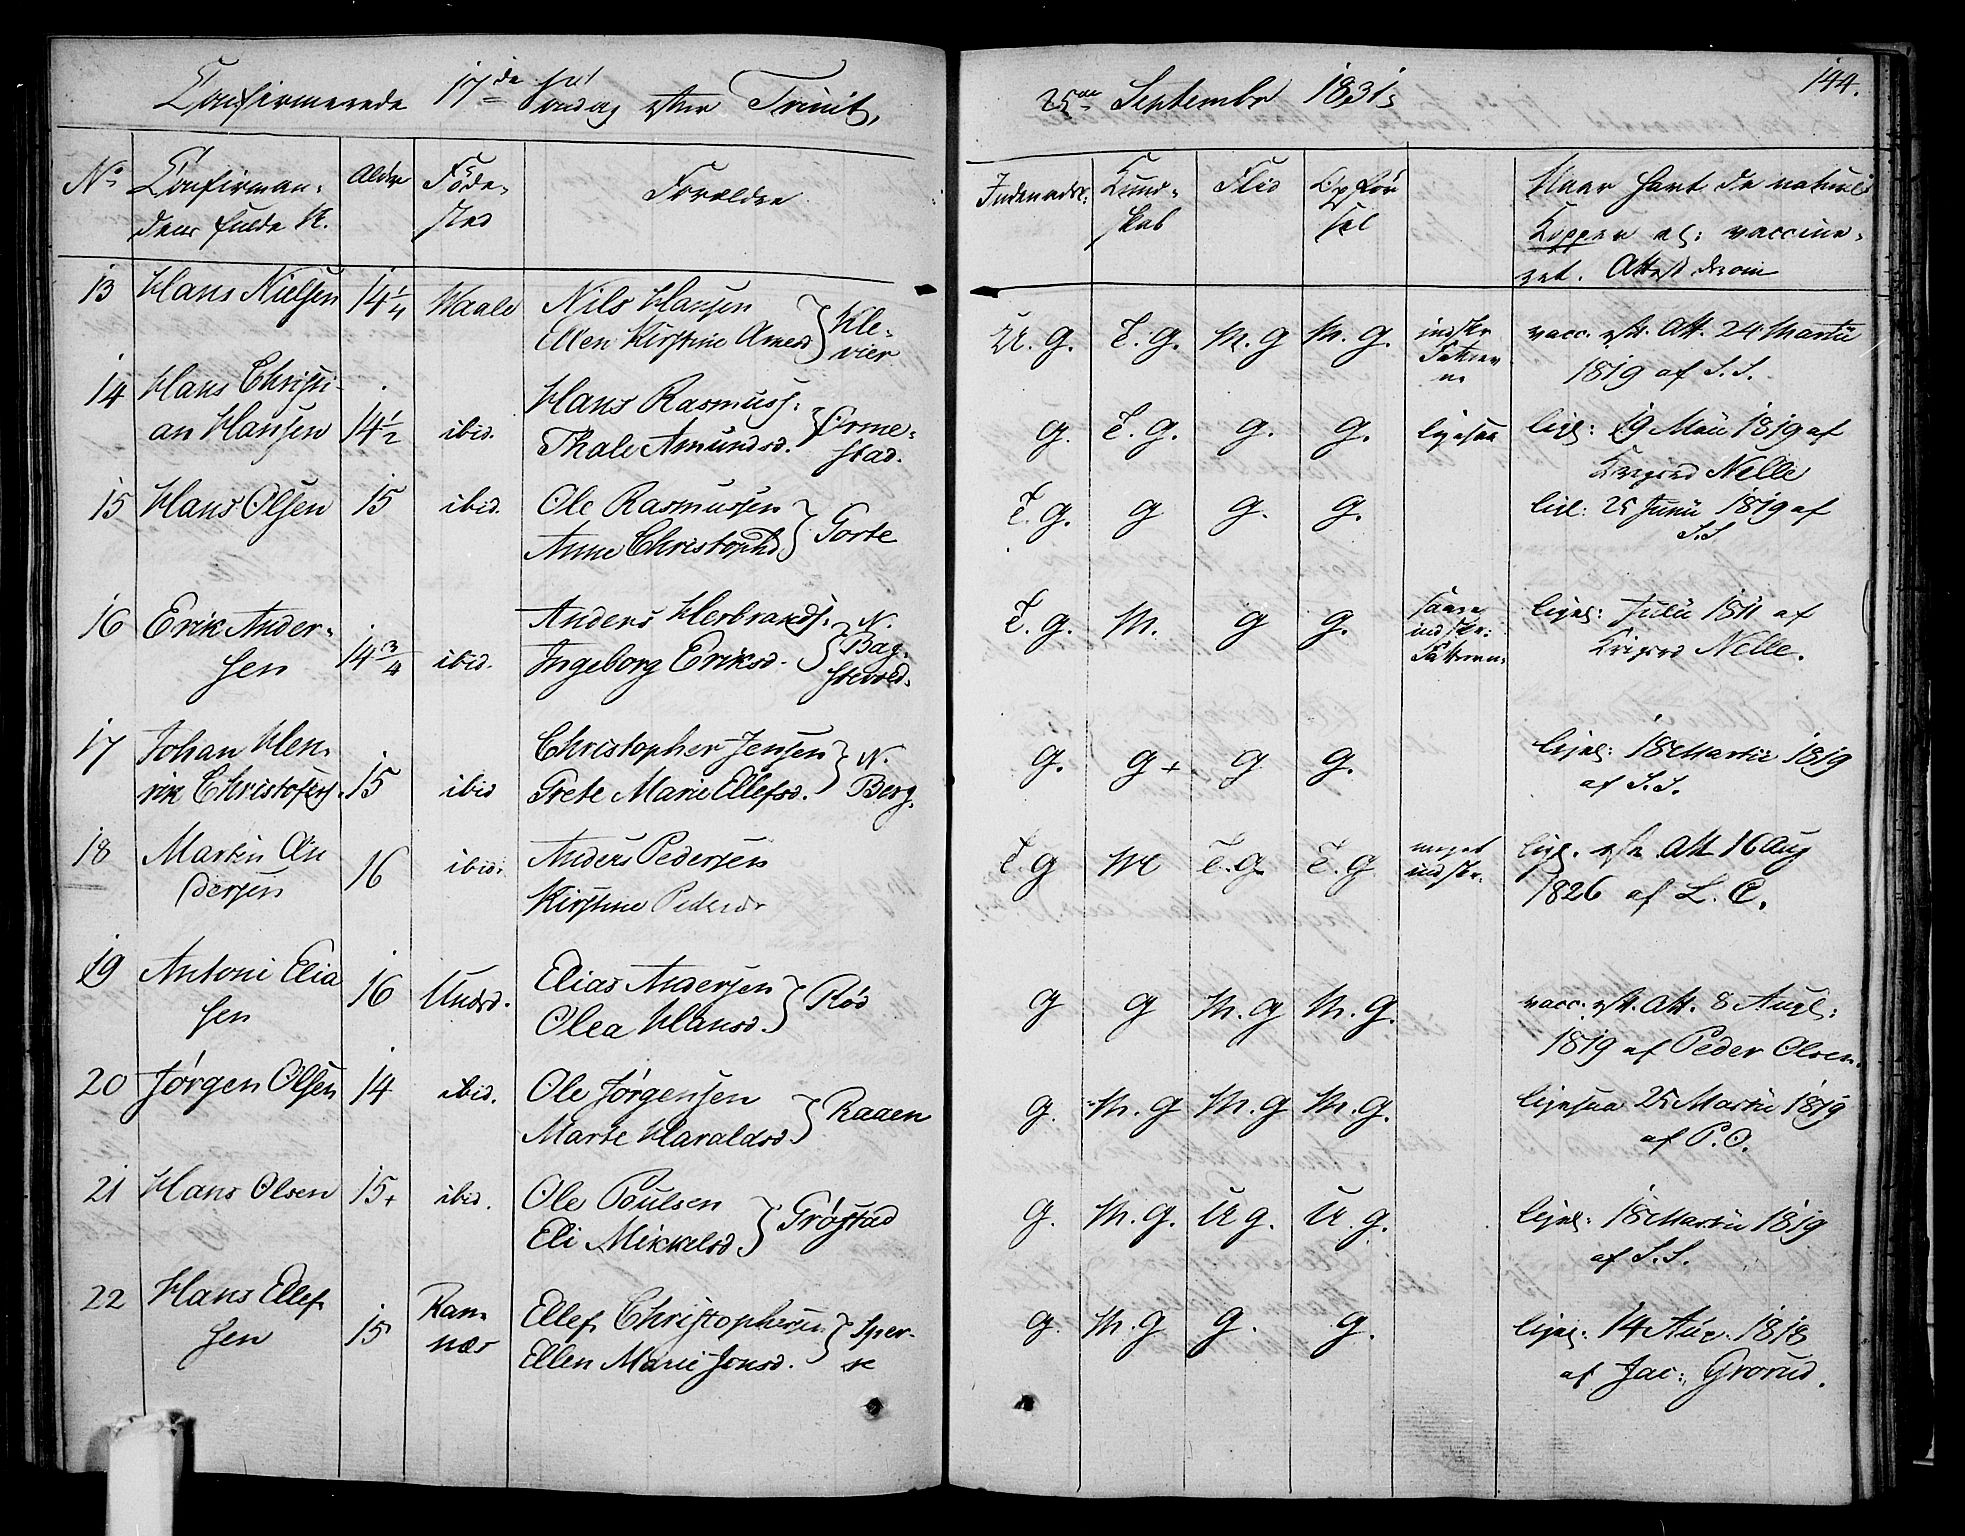 Confirmerede 17de Søndag efter Trinit, 25de Septembr 1831.
144.
No
Confirman-
dens fulde N.
Alder
Føde-
sted
Forældre
Indenadsl:
Kund-
skab
Flid
Opfør
sel
Naar havt de naturl:
Kopper el: vaccine-
ret. Attest derom
13 Hans Nielsen 14 1/4 Vaale Nils Hansen
Ellen Kirstine Arnesd } Kle-
vier
U. G. T. G. M. G M. G. vacc. eft. Att. 24 Martii
1819 af S. S.
14 Hans Christi-
an Hansen 14 1/2 ibid. Hans Rasmuss:
Thale Amundsd. } Orme-
stad.
G. T. G. G. G. ligesaa ligel: 19 Mai 1819 af
Nelle
15 Hans Olsen 15 ibid. Ole Rasmussen
Anne Christophd } Gorte
T. G. G G. G. ligel: 25 Junii 1819 af
S.S
16 Erik Ander-
sen 14 3/4 ibid. Anders Herbrands.
Ingeborg Eriksd. } N.
Bag-
stevold.
T. G. M. G G. ligel: Julii 1811 af
Nelle.
17 Johan Hen-
rik Christofers. 15 ibid Christopher Jensen
Grete Marie Ellefsd. } N.
Berg.
G. G + G G. ligel: 18 Martii 1819
af S.S.
18 Martin An
dersen 16 ibid. Anders Pedersen
Kirstine Pedersd
T. G M T. G. T. G meget
indskr. ligel. eft. Att 16 Aug
1826 af L. C.
19 Antoni Elia
sen 16 Undrd. Elias Andersen
Olea Hansd. } Rød
G G M. G M. G. vacc. eft. Att. 8 Aug:
1819 af Peder Olsen.
20 Jørgen Olsen 14 ibid. Ole Jørgensen
Marte Haraldsd } Raaen
G. M. G M. G M. G. ligesaa 25 Martii 1819
af P. O.
21 Hans Olsen 15+ ibid. Ole Poulsen
Eli Mikkelsd } Grøstad
G. M. G. U G. U. G. ligel: 18 Martii 1819
af S. S.
22 Hans Ellef
sen 15 Ram
næs Ellef Christophersen
Ellen Marie Jonsd. } Sper-
re
G. M. G G. G. ligel: 14 Aug. 1818
af Jac: Grorud.